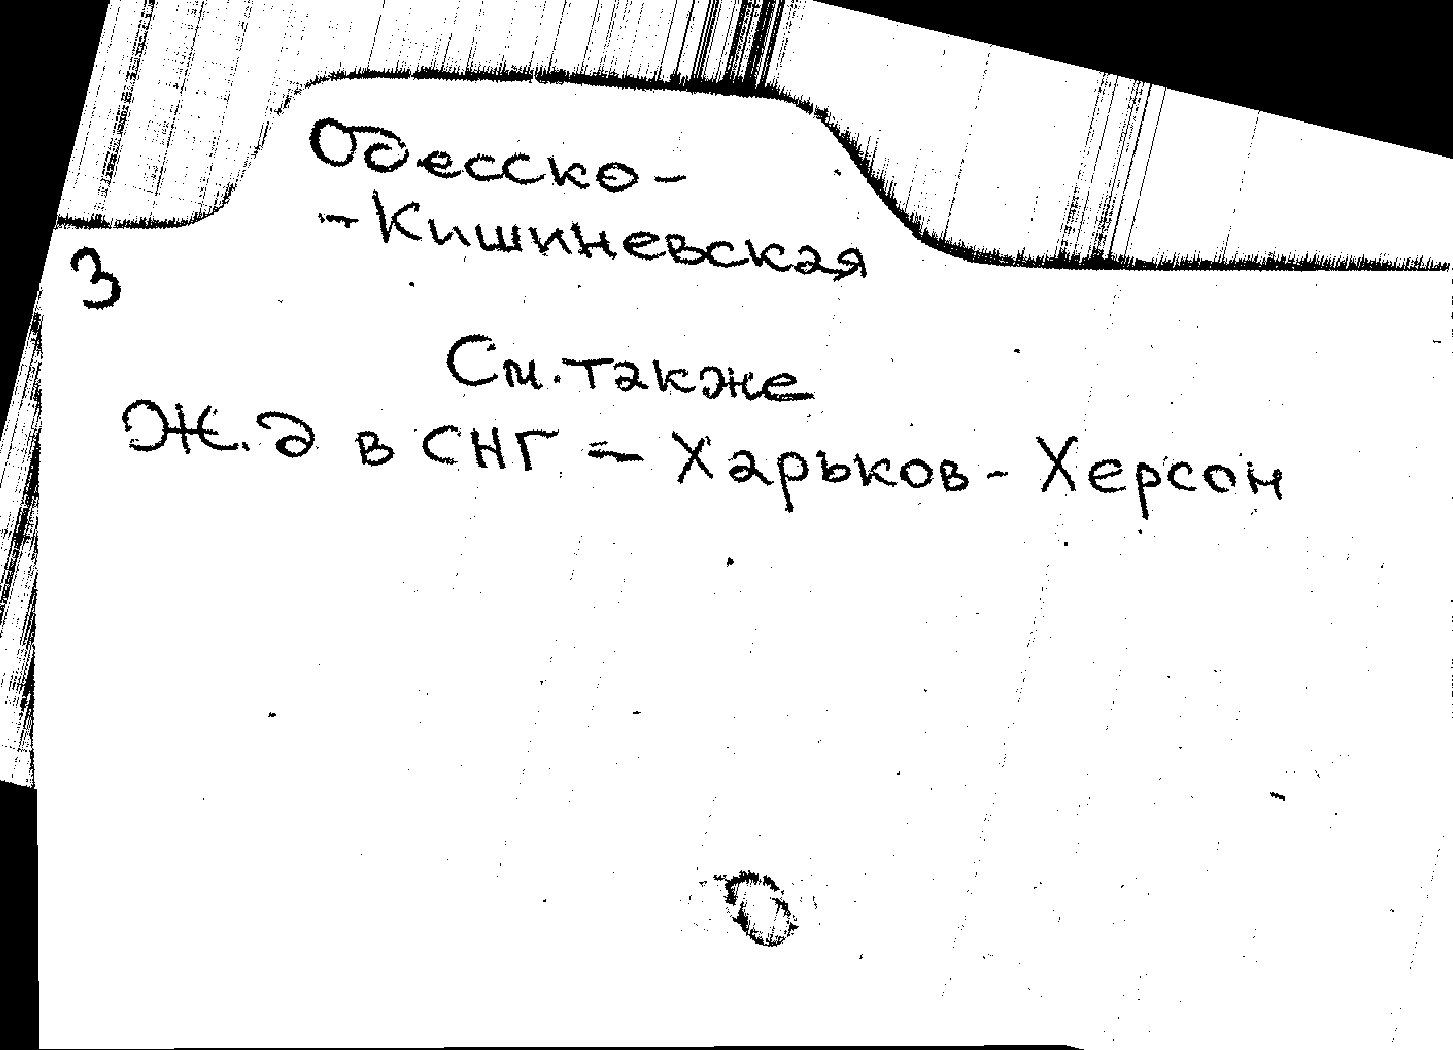 Одесско-
-Кишиневская
3
См. также
Ж.д в СНГ - Харьков - Херсон